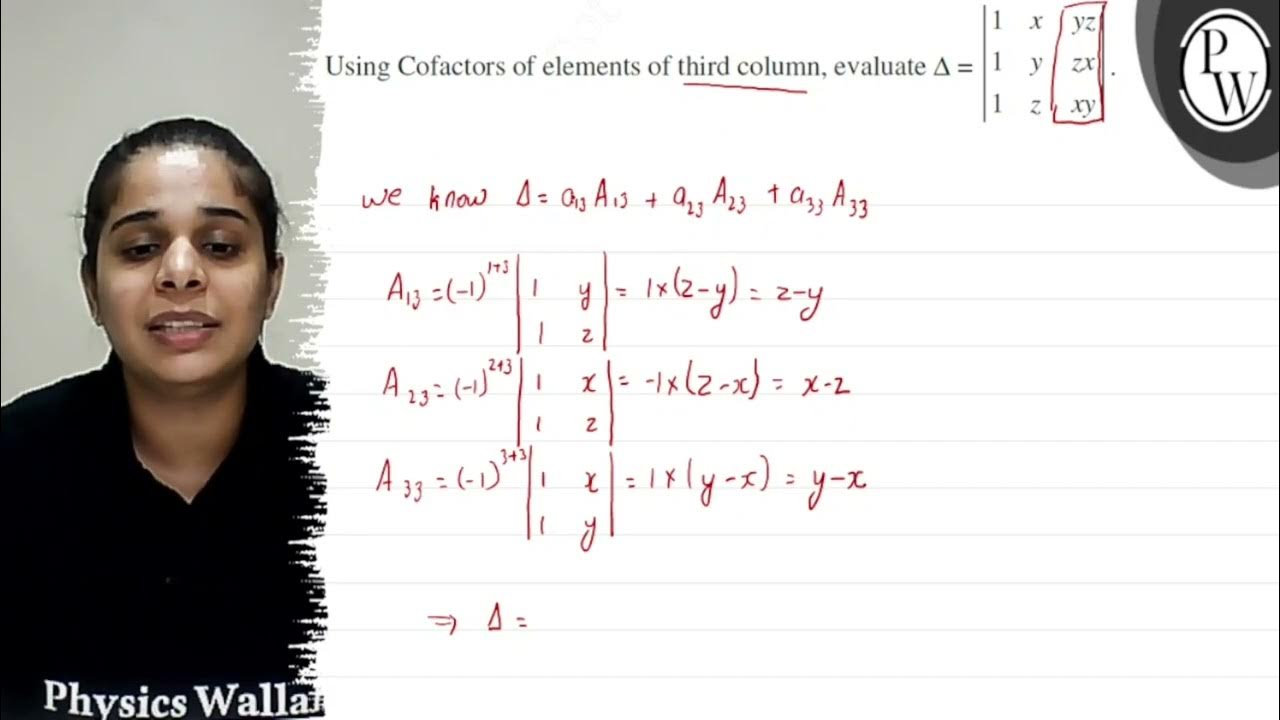 Using Cofactors of elements of third column, evaluate Δ = | 1 x yz |
| 1 y zx |
| 1 z xy | .
PW
we know Δ = a₁₃A₁₃ + a₂₃A₂₃ + a₃₃A₃₃
A₁₃ = (-1)¹⁺³ | 1 y | = 1×(z-y) = z-y
| 1 z |
A₂₃ = (-1)²⁺³ | 1 x | = -1×(z-x) = x-z
| 1 z |
A₃₃ = (-1)³⁺³ | 1 x | = 1×(y-x) = y-x
| 1 y |
⇒ Δ =
Physics Wallah